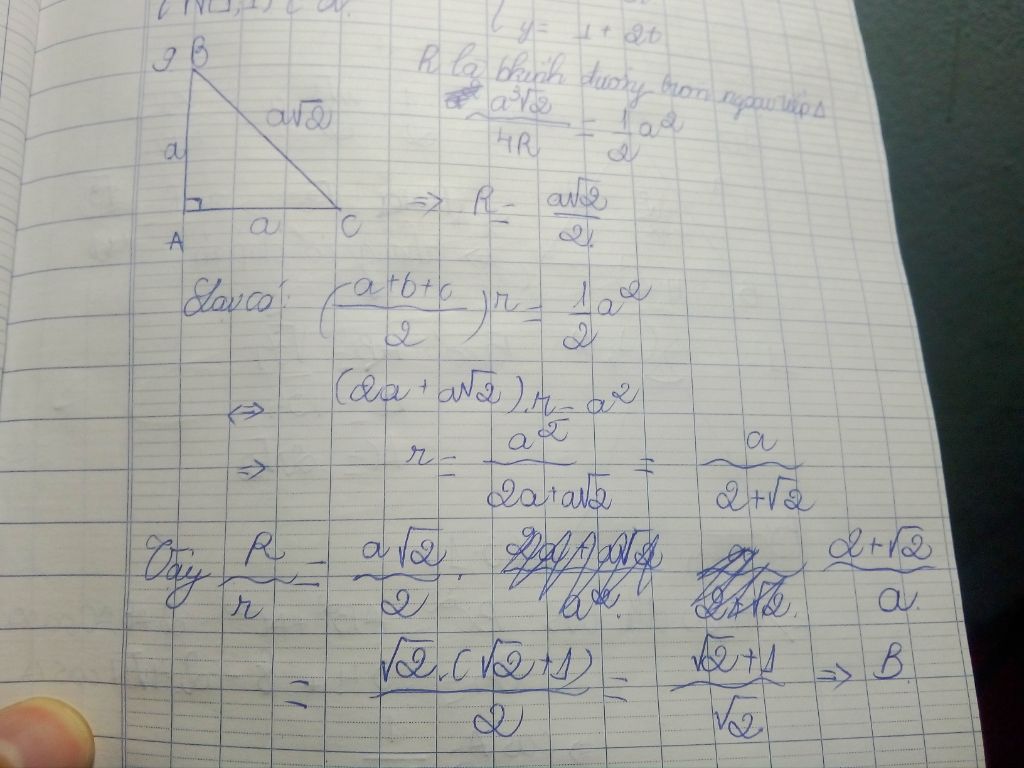 y = 1 + 2t
9
B
R là bkính đường tròn ngoại tiếp Δ
a√2
a³√2 / 4R = 1/2 a²
a
⇒ R = a√2 / 2
A a C
Ta có: ((a+b+c) / 2) r = 1/2 a²
⇔ (2a + a√2).r = a²
⇒ r = a² / (2a+a√2) = a / (2+√2)
Vậy R/r = a√2 / 2 . (2+√2) / a.
= √2.(√2+1) / 2 = (√2+1) / √2 ⇒ B.